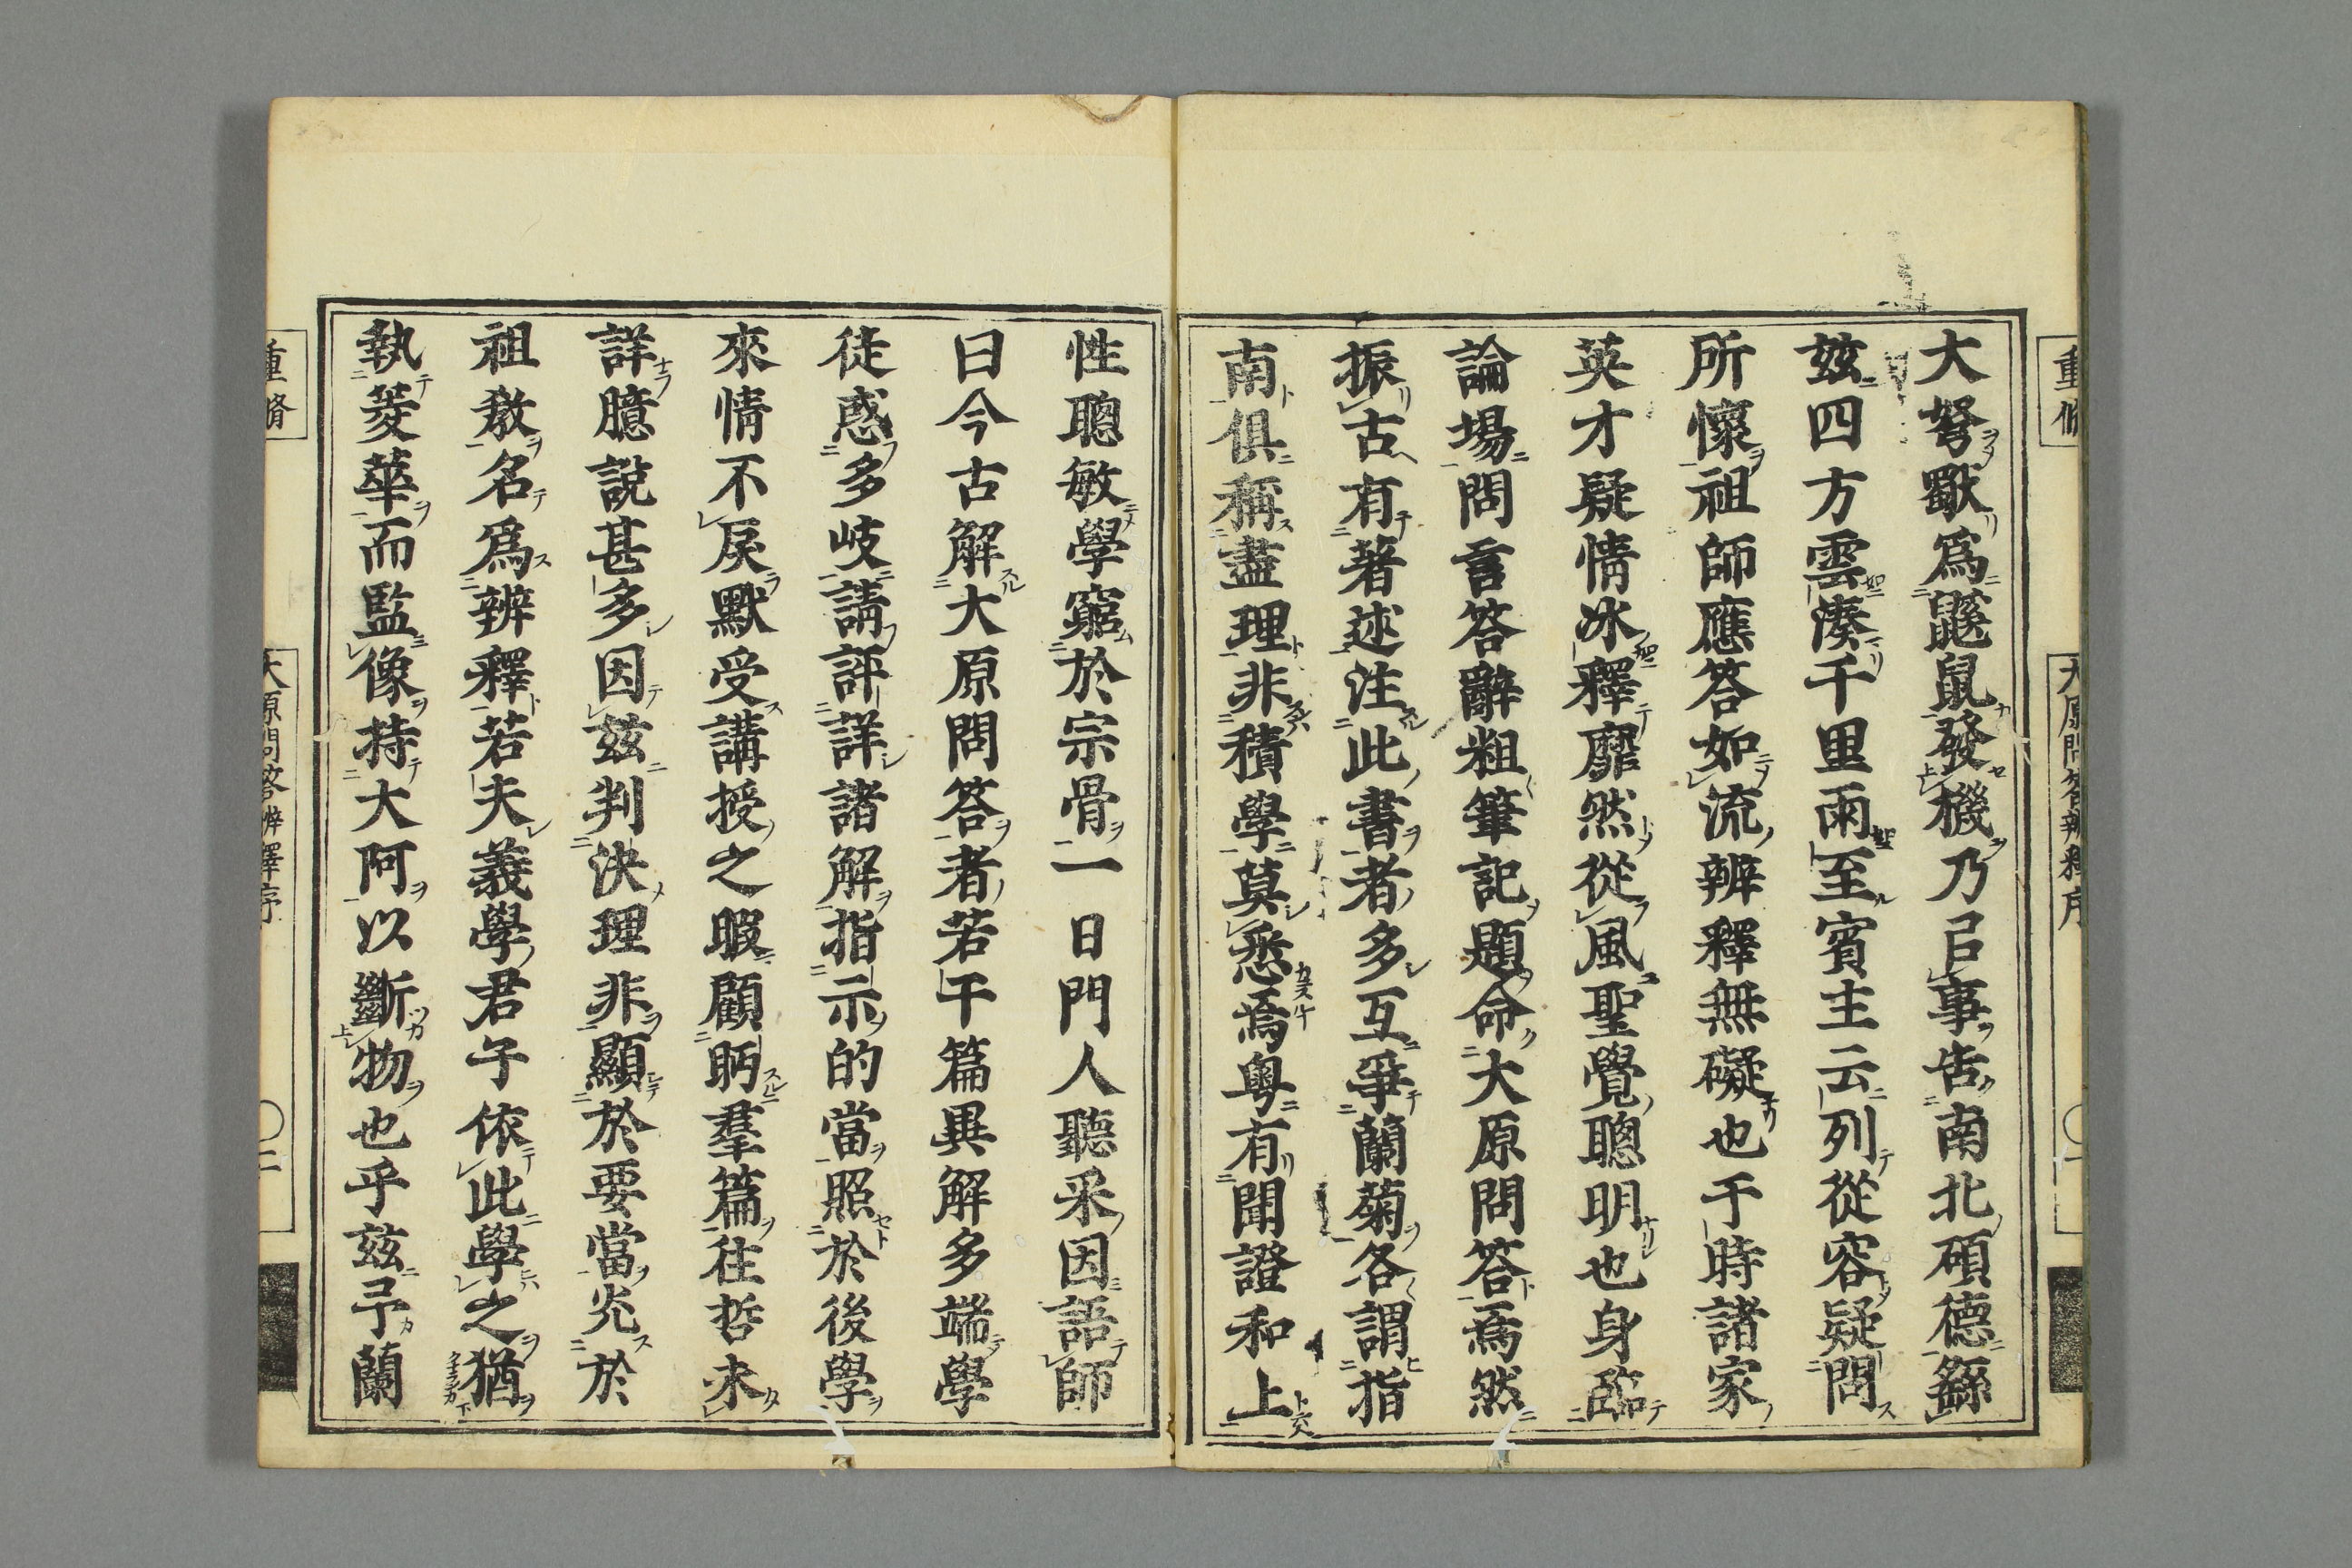 大弩獸爲鼷鼠發機乃㠯事告南北碩德繇
玆四方雲湊千里雨至賓主云列從容疑問
所懷祖師應答如流辨釋無礙也于時諸家
英才疑情冰釋靡然從風聖覺聰明也身臨
論場問言答辭粗筆記題命大原問答焉然
振古有著述注此書者多互爭蘭菊各謂指
南俱稱盡理非積學莫悉焉粤有聞證和上
性聰敏學窮於宗骨一日門人聽釆因語師
曰今古解大原問答者若干篇異解多端學
徒惑多岐請評詳諸解指示的當照於後學
來情不戾默受講授之暇顧眄羣篇往哲未
詳臆說甚多因玆判決理非顯於要當炎於
祖教名爲辨釋若夫義學君子依此學之猶
執菱華而監像持大阿以斷物也乎玆予蘭
重脩
大原問答辨釋序
〇一
重脩
大原問答辨釋序
〇二